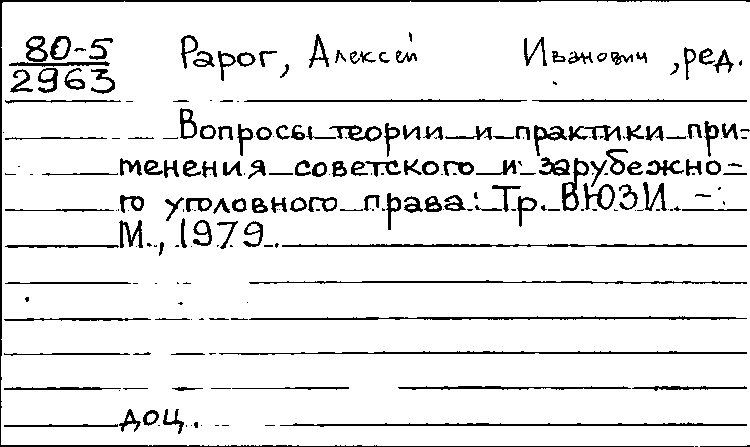 80-5 Рарог, Алексей Иванович, ред.
2963
Вопросы теории и практики при-
менения советского и зарубежно-
го уголовного права: Тр. ВЮЗИ. -
М., 1979.
доц.